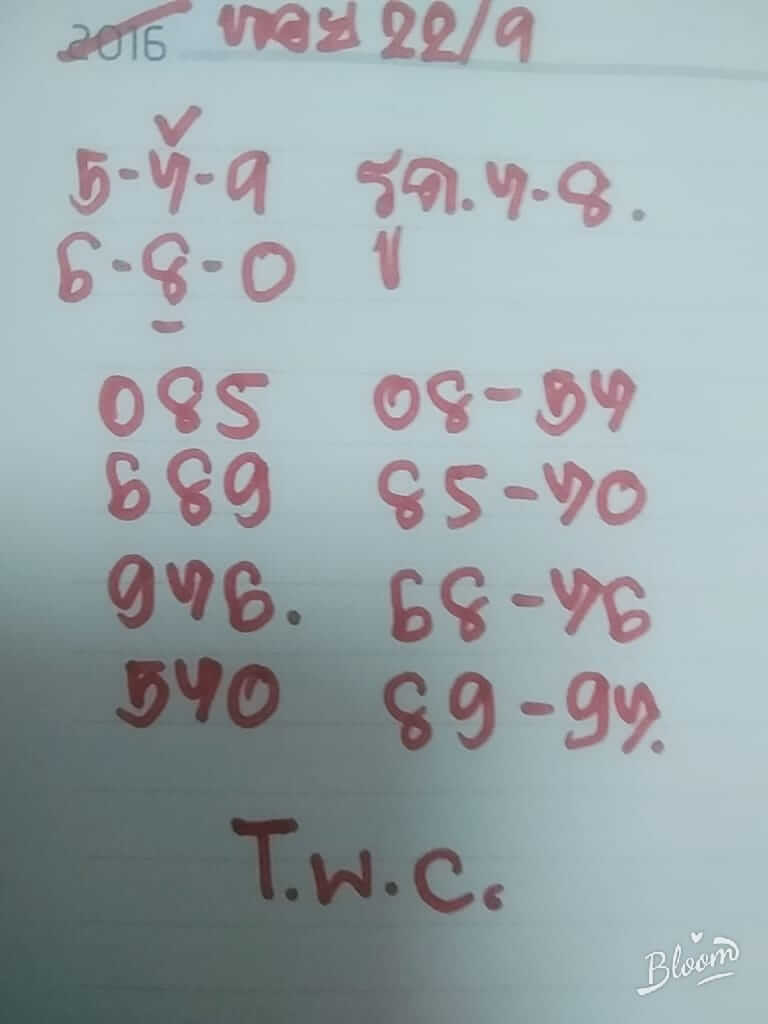 2016 หอย 22/9
5-7-9 รูด.7-8.
6-8-0
085 08-57
689 85-70
976. 68-76
570 89-97.
T.W.C.
Bloom